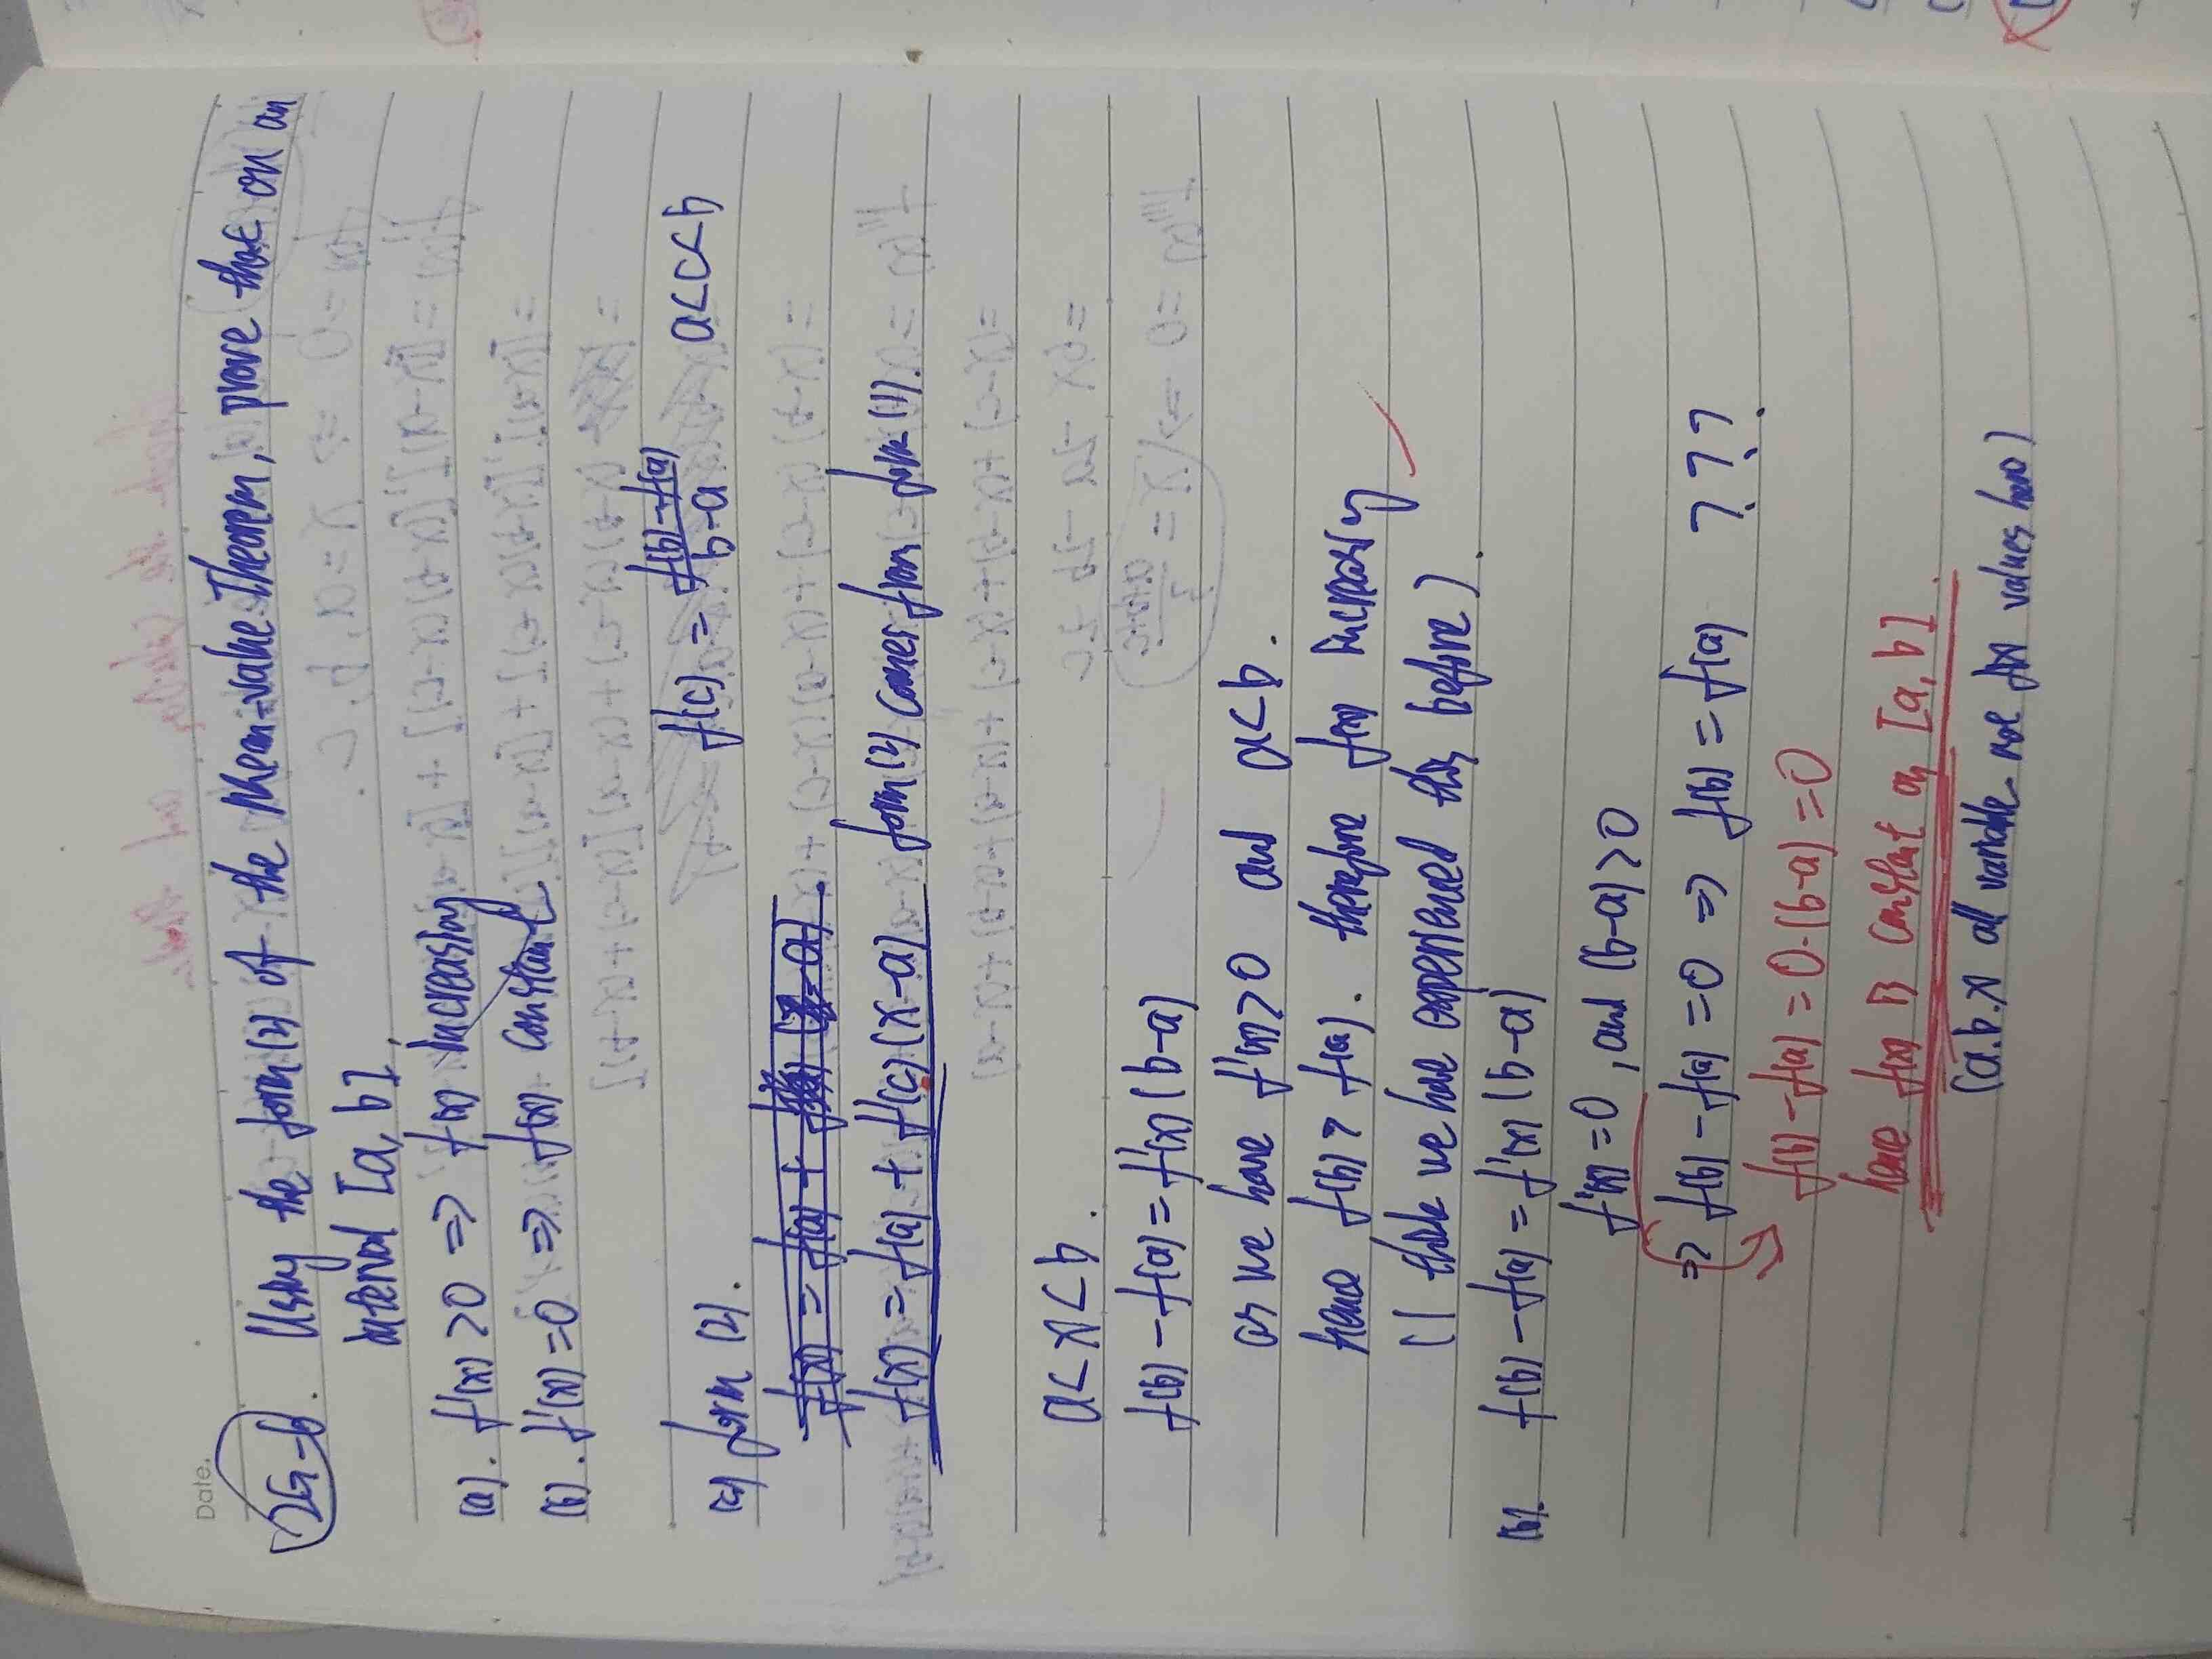 Date.
2G-6. Using the form (2) of the Mean-value Theorem, prove that on an
interval [a, b],
(a). f'(x) > 0 => f(x) increasing
(b). f'(x) = 0 => f(x) constant
(a) form (2). f'(c) = \frac{f(b) - f(a)}{b - a} a < c < b
f(x) = f(a) + f'(c) (x - a) form (2) comes from form (1).
a < x < b.
f(b) - f(a) = f'(x) (b - a)
as we have f'(x) > 0 and a < b.
hence f(b) > f(a). therefore f(x) increasing
(I think we have experienced this before).
(b). f(b) - f(a) = f'(x) (b - a)
f'(x) = 0, and (b - a) > 0
=> f(b) - f(a) = 0 => f(b) = f(a) ? ? ?.
f(b) - f(a) = 0·(b - a) = 0
hence f(x) is constant on [a, b].
(a. b. x all variable not fix values here)